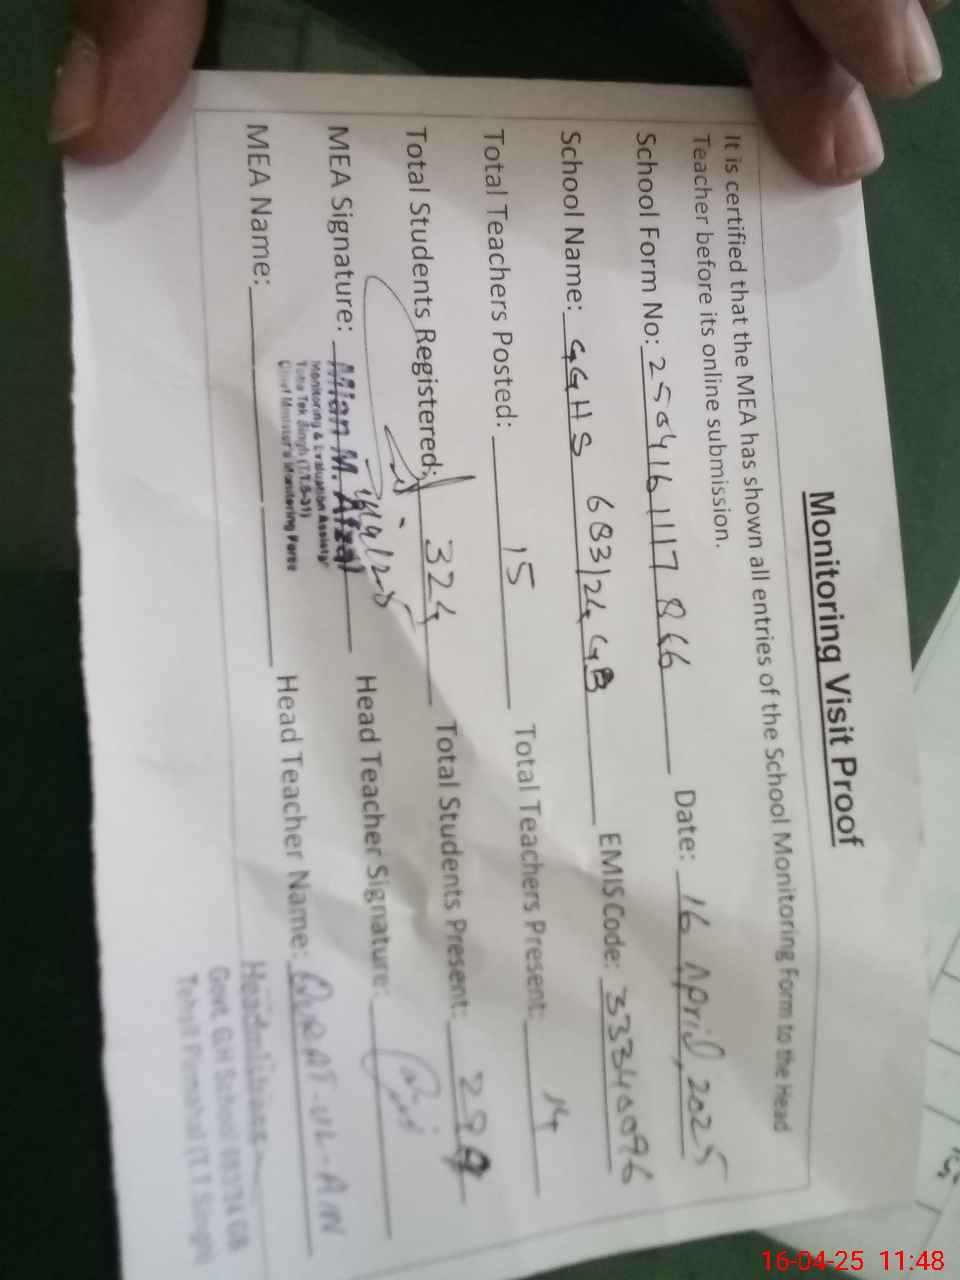 Monitoring Visit Proof
It is certified that the MEA has shown all entries of the School Monitoring Form to the Head
Teacher before its online submission.
School Form No: 2504161117866 Date: 16 April, 2025
School Name: GGHS 683/24 GB EMIS Code: 33340096
Total Teachers Posted: 15 Total Teachers Present: 14
Total Students Registered: 324 Total Students Present:
MEA Signature: Head Teacher Signature:
Mian M. Afzal
Monitoring & Evaluation Assistant
Toba Tek Singh (T.T.S-31)
Chief Minister's Monitoring Force
MEA Name: Head Teacher Name: QURAT-UL-AIN
Headmistress
Govt. G.H School 683/24 GB
Tehsil Pirmahal (T.T.Singh)
16-04-25 11:48